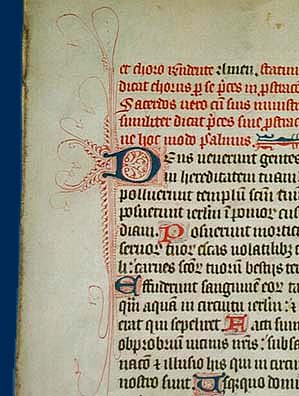 et choro rendente Amen, statim
dicat chorus p se pces in pstrac
Sacerdos vero cu suis minist
similiter dicat pces sine pstrac
ne hoc modo psalmus.
Deus venerunt gentes
in hereditatem tuam
polluerunt templum sctm tuu
posuerunt ierlm i pomor cus
diam. Posuerunt mortici
servor tuor escas volatilibz
li: carnes scor tuorum bestijs te
Effuderunt sanguine eor ta
qm aquam in circuitu ierlm: &
erat qui sepeliret. Facti sum
obprobrium vicinis nris: subsa
naco & illusio hijs qui in circu
nostro sunt. Usquequo domi